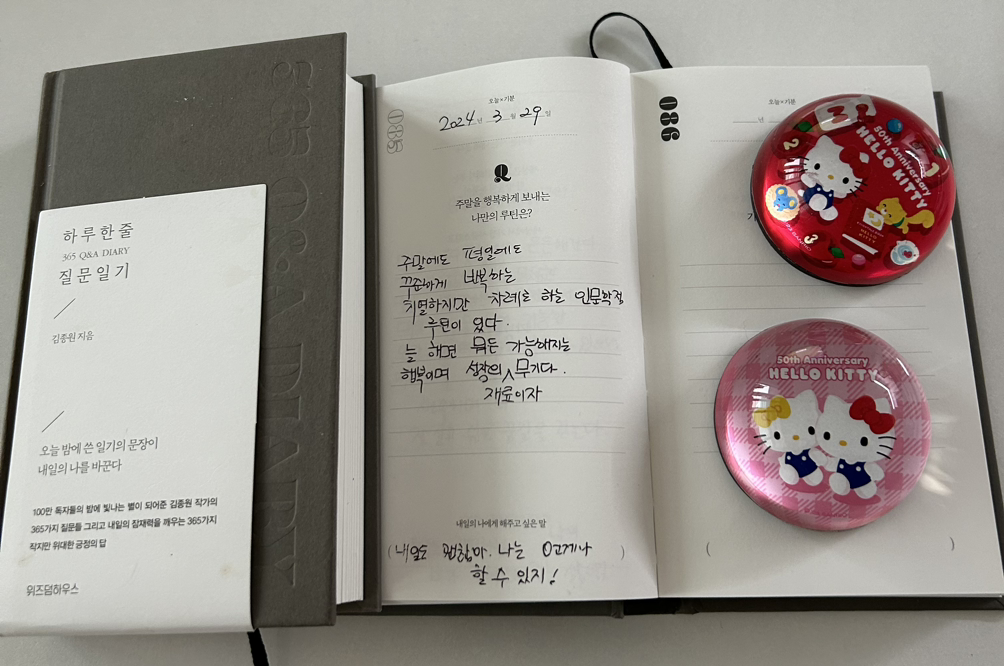 하루 한 줄
365 Q&A DIARY
질문 일기
김종원 지음
오늘 밤에 쓴 일기의 문장이
내일의 나를 바꾼다
100만 독자들의 밤에 빛나는 별이 되어준 김종원 작가의
365가지 질문들 그리고 내일의 잠재력을 깨우는 365가지
작지만 위대한 긍정의 답
위즈덤하우스
365 Q&A DIARY
085
오늘×기분
2024년 3월 29일
Q
주말을 행복하게 보내는
나만의 루틴은?
주말에도 평일에도
꾸준하게 반복하는
치열하지만 차례로 하는 인문학적
루틴이 있다.
늘 해면 뭐든 가능해지는
행복이며 성장의 무기다.
재료이자
내일의 나에게 해주고 싶은 말
(내일도 괜찮아. 나는
할 수 있지!
)
086
오늘×기분
년
50th Anniversary
HELLO KITTY
1
2
3
50th Anniversary
HELLO KITTY
( )